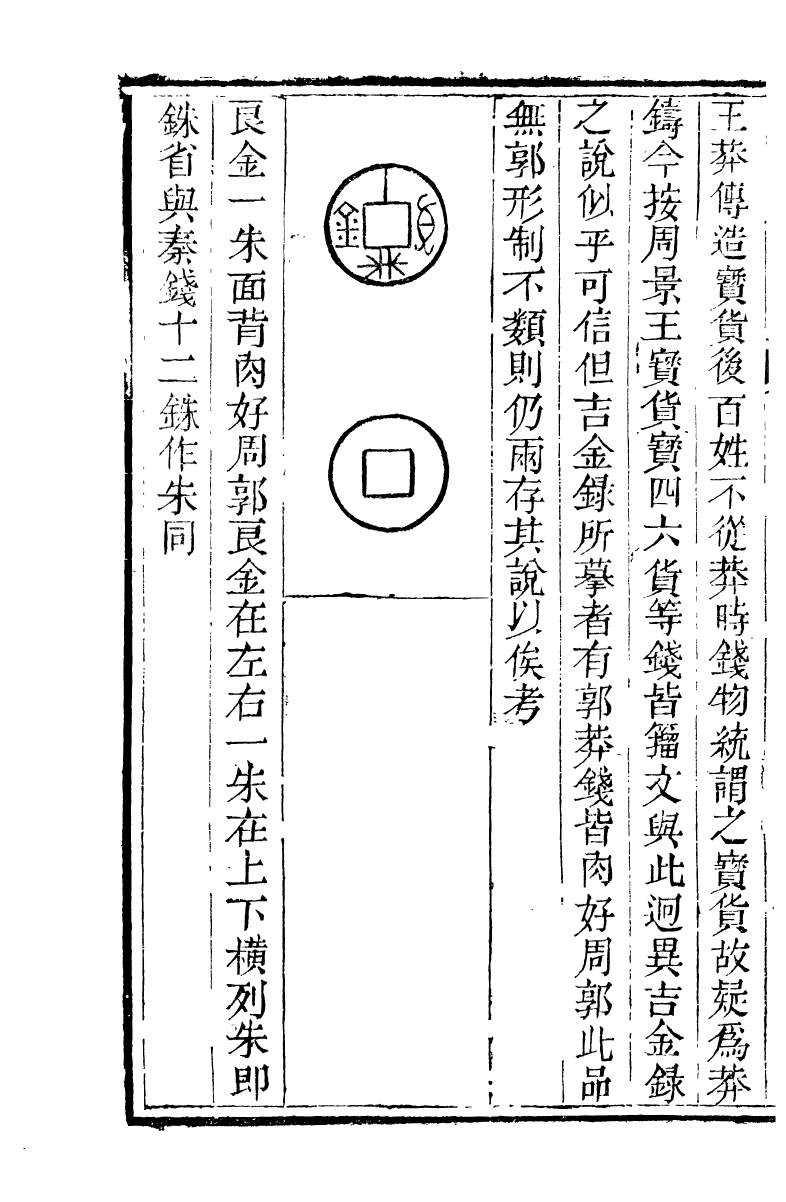 王莽傳造寶貨後百姓不從莽時錢物統謂之寶貨故疑爲莽
鑄今按周景王寶貨寶四六貨等錢皆籀文與此迥異吉金録
之說似乎可信但吉金録所摹者有郭莽錢皆肉好周郭此品
無郭形制不類則仍兩存其說以俟考
良金一朱面背肉好周郭良金在左右一朱在上下橫列朱即
銖省與秦錢十二銖作朱同